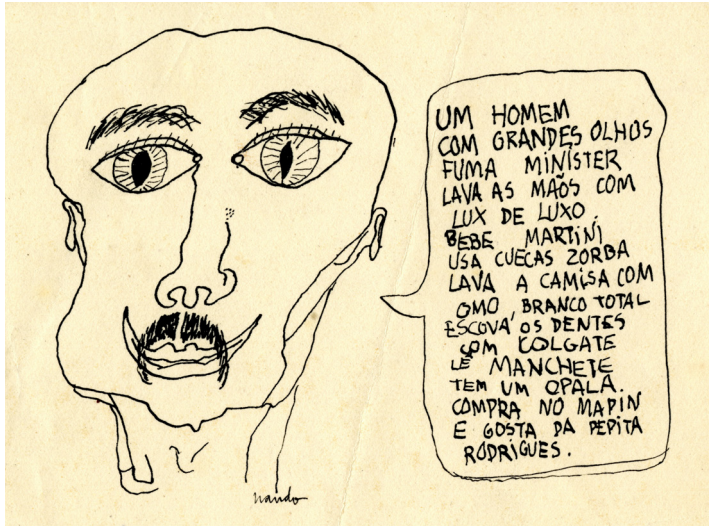 UM HOMEM
COM GRANDES OLHOS
FUMA MINISTER
LAVA AS MÃOS COM
LUX DE LUXO.
BEBE MARTINI
USA CUECAS ZORBA
LAVA A CAMISA COM
OMO BRANCO TOTAL
ESCOVA OS DENTES
COM COLGATE
LÊ MANCHETE
TEM UM OPALA.
COMPRA NO MAPIN
E GOSTA DA PEPITA
RODRIGUES.
nando